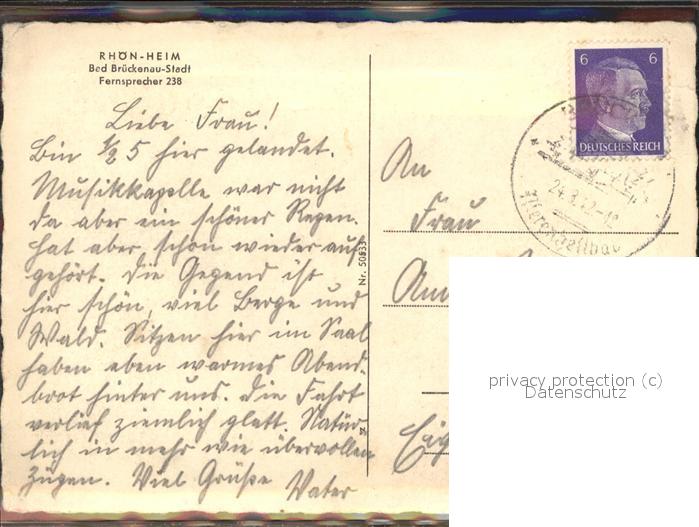 RHÖN-HEIM
Bad Brückenau-Stadt
Fernsprecher 238
Liebe Frau!
Bin ½ 5 hier gelandet.
Musikkapelle war nicht
da aber ein schöner Regen.
hat aber schon wieder auf
gehört. die Gegend ist
hier schön, viel Berge und
Wald. Sitzen hier im Saal
haben eben warmes Abend-
brot hinter uns. die Fahrt
verlief ziemlich glatt. Natür-
lich in mehr wie übervollen
Zügen. Viel Grüße Vater
Nr. 50833
6 6
DEUTSCHES REICH
24.8.42-12
An
Frau
privacy protection (c)
Datenschutz